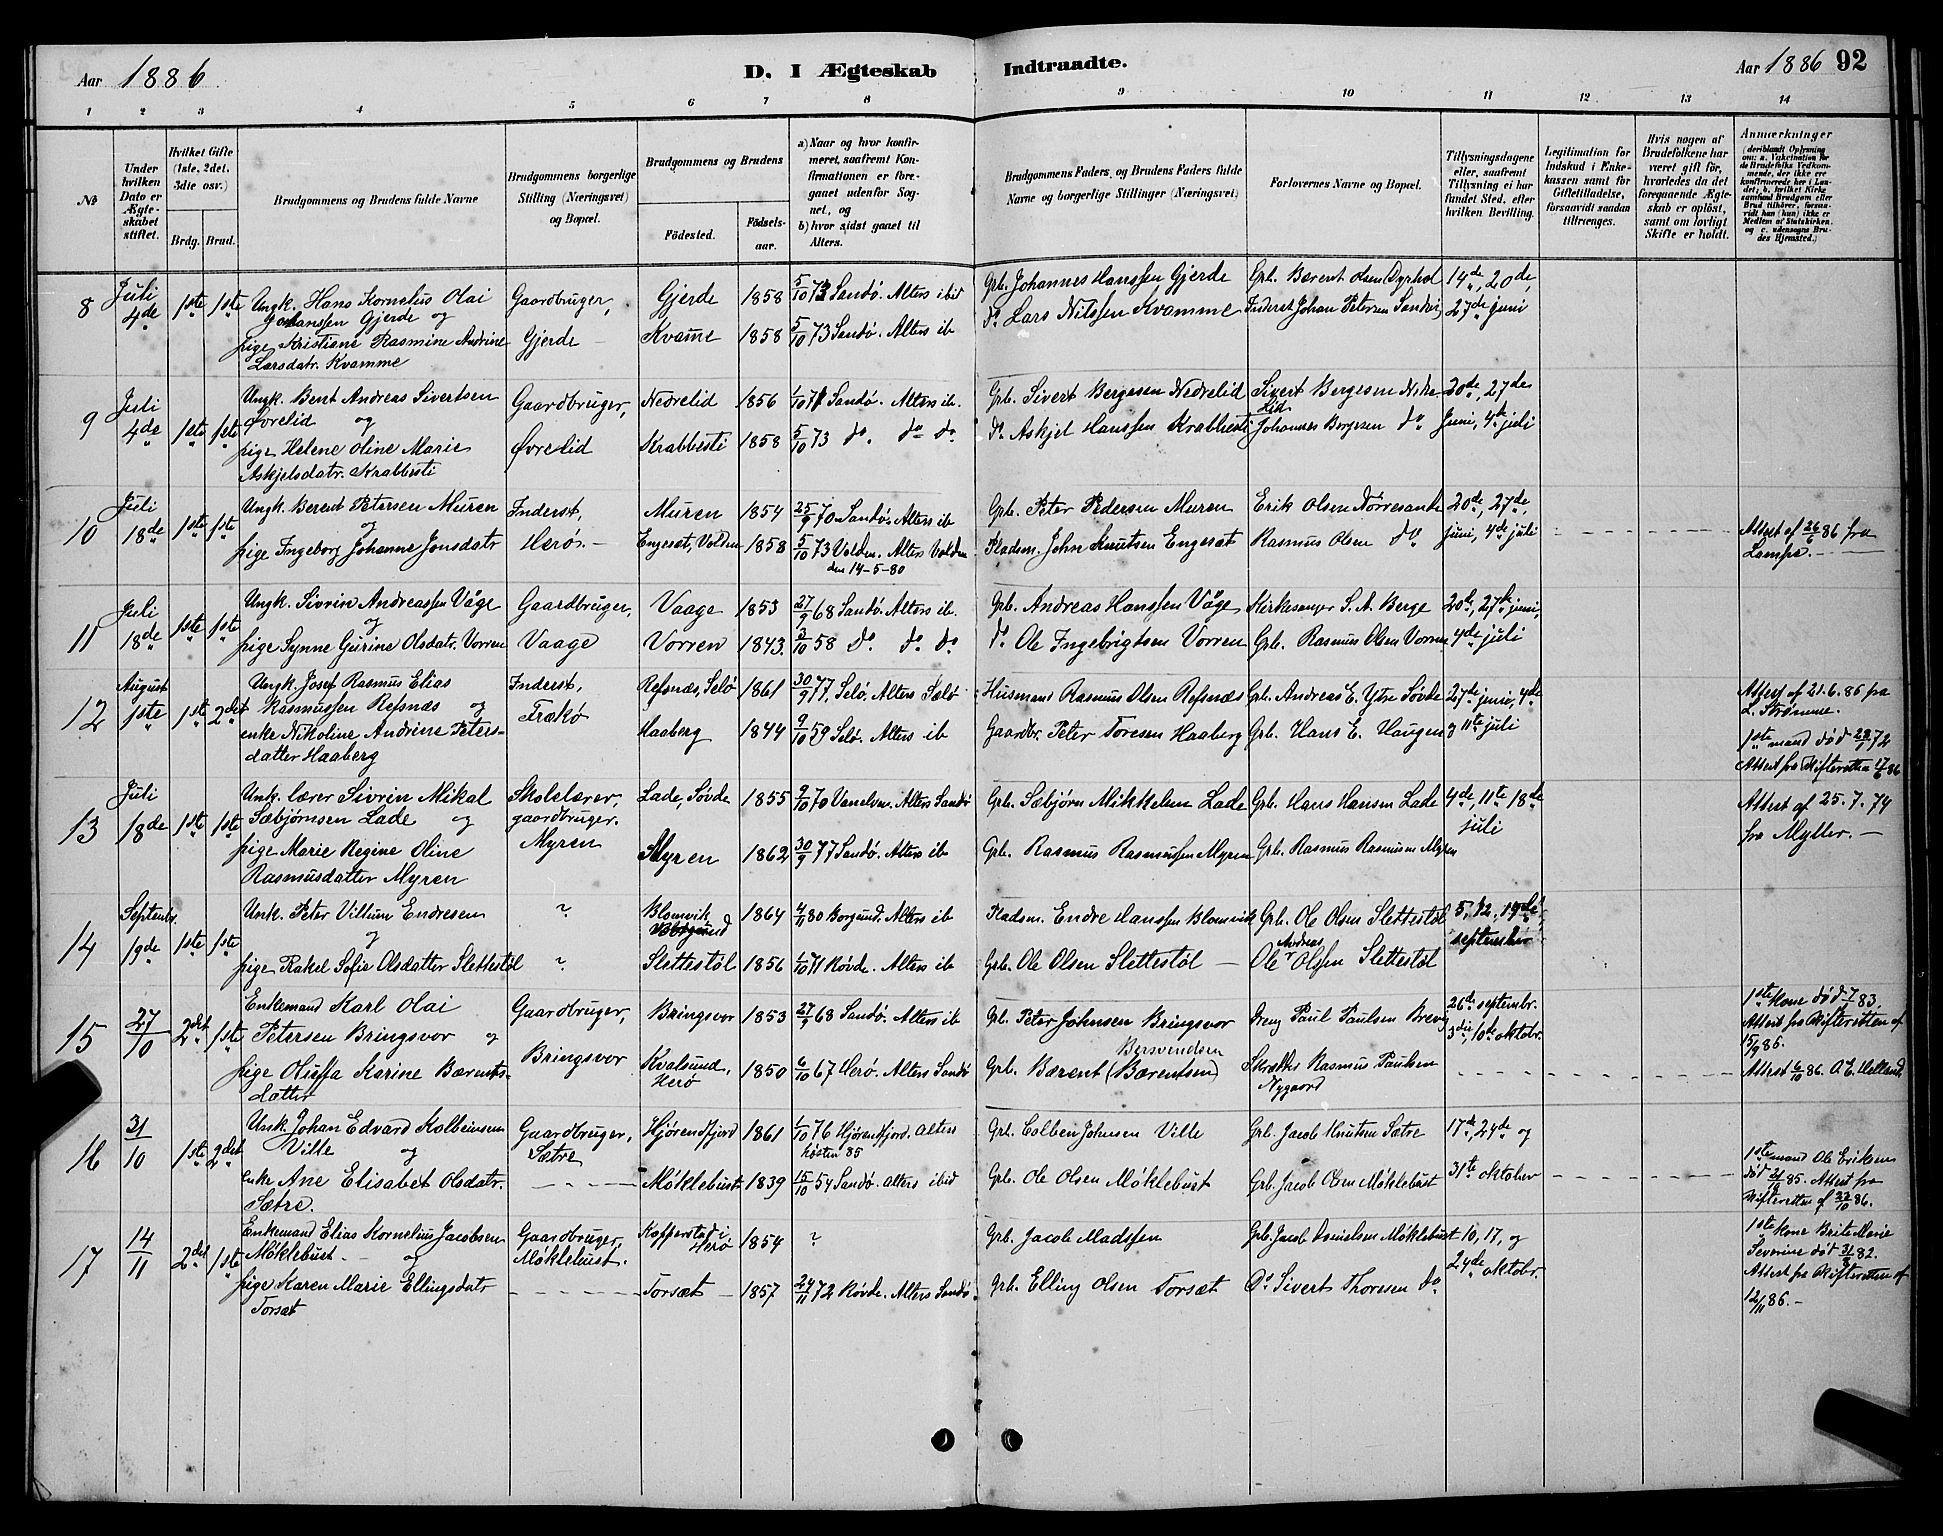 Aar 1886
D. I Ægteskab Indtraadte.
Aar 1886 92
1 2 3 4 5 6 7 8 9 10 11 12 13 14
№
Under hvilken Dato er Ægteskabet stiftet.
Hvilket Gifte (1ste, 2det, 3die osv.)
Brdg. Brud.
Brudgommens og Brudens fulde Navne
Brudgommens borgerlige Stilling (Næringsvei) og Bopæl.
Brudgommens og Brudens
Födested.
Födselsaar.
a) Naar og hvor konfirmeret, saafremt Konfirmationen er foregaaet udenfor Sognet, og
b) hvor sidst gaaet til Alters.
Brudgommens Faders og Brudens Faders fulde Navne og borgerlige Stillinger (Næringsvei)
Forlovernes Navne og Bopæl.
Tillysningsdagene eller, saafremt Tillysning ei har fundet Sted, efter hvilken Bevilling.
Legitimation for Indskud i Enkekassen samt for Giftetilladelse, forsaavidt saadan tiltrænges.
Hvis nogen af Brudefolkene har været gift för, hvorledes da det foregaaende Ægteskab er oplöst, samt om lovligt Skifte er holdt.
Anmærkninger (deriblandt Oplysning om: a. Vakcination for de Brudefolks Vedkommende, der ikke ere konfirmerede her i Landet; b. hvilket Kirkesamfund Brudgom eller Brud tilhörer, forsaavidt han (hun) ikke er Medlem af Statskirken, og c. udensogns Brudes Hjemsted.)
8 Juli 4de 1ste 1ste
Ungk. Hans Kornelius Olai
Johanssen Gjerde og
pige Kristiane Rasmine Andrine
Larsdatr. Kvamme
Gaardbruger,
Gjerde
Gjerde 1858 5/10 73 Sandö. Alters ibid
Kvame 1858 5/10 73 Sandö. Alters ib
Grb. Johannes Hanssen Gjerde
do Lars Nilssen Kvamme
Grb. Bærent Olsen Dyrhol
Inderst Johan Petersen Sandvi
14de, 20de,
27de juni
9 Juli 4de 1ste 1ste
Ungk. Bent Andreas Sivertsen
Øvrelid og
pige Helene Oline Marie
Askjelsdatr. Krabbesti
Gaardbruger,
Øvrelid
Nedrelid 1856 1/10 71 Sandö. Alters ib.
Krabbesti 1858 5/10 73 do. do do.
Grb. Sivert Bergesen Nedrelid
do Askjel Hanssen Krabbesti
Sivert Bergesen Nedre
lid
Johannes Bergesen do
20de, 27de
Juni, 4de juli
10 Juli 18de 1ste 1ste
Ungk. Berent Petersen Muren
og
pige Ingeborg Johanne Jonsdatr
Inderst,
Herö.
Muren 1854 25/9 70 Sandö. Alters ib
Engesæt, Volden 1858 5/10 73 Volden. Alters Volden
den 14-5-80
Grb. Peter Pedersen Muren
Pladsm. John Knutsen Engesæt
Erik Olsen Nörresande
Rasmus Olsen do
20de, 27de,
juni, 4de juli
Attest af 26/6 86 fra
Lampe.
11 Juli 18de 1ste 1ste
Ungk. Sivrin Andreassen Våge
og
pige Synne Gurine Olsdatr. Vorren
Gaardbruger,
Vaage
Vaage 1853 27/9 68 Sandö. Alters ib.
Vorren 1843. 3/10 58 do. do do.
Grb. Andreas Hanssen Våge
do Ole Ingebrigtsen Vorren
Kirkesanger S. A. Berge
Grb. Rasmus Olsen Vorren
20de, 27de juni,
4de juli
12 August 1ste 1ste 2det
Ungk. Josef Rasmus Elias
Rasmussen Refsnæs og
enke Nikoline Andrine Peters-
datter Haaberg
Inderst,
Frækö
Refsnæs, Selö 1861 30/9 77. Selö. Alters Selö
Haaberg 1844 9/10 59 Selö. Alters ib
Husmand Rasmus Olsen Refsnæs
Gaardbr. Peter Toresen Haaberg
Grb. Andreas E. Ytre Søvde
Grb. Hans E. Haugen
27de juni, 4de
og 11te juli
Attest af 21.6.86 fra
L. Strømme.
1ste mand död 28/1 72
Attest fra Skifteretten 17/6 86
13 Juli 18de 1ste 1ste
Ungk. lærer Sivrin Mikal
Sæbjörnsen Lade og
pige Marie Regine Oline
Rasmusdatter Myren
Skolelærer,
gaardbruger.
Myren
Lade, Søvde 1855 2/10 70 Vanelven. Alters Sandö
Myren 1862 30/9 77 Sandö. Alters ib
Grb. Sæbjörn Mikkelsen Lade
Grb. Rasmus Rasmussen Myren
Grb. Hans Hansen Lade
Grb. Rasmus Rasmusen Myren
4de, 11te 18de
juli
Attest af 25.7.74
fra Myller.
14 Septembr. 19de 1ste 1ste
Unk. Peter Villum Endresen
og
pige Rakel Sofie Olsdatter Slettestöl
?
?
Blomvik
Borgund 1864 4/11 80 Borgund. Alters ib
Slettestöl 1856 1/10 71 Rövde. Alters ib
Pladsm. Endre Hanssen Blomvik
Grb. Ole Olsen Slettestöl
Grb. Ole Olsen Slettestöl
Ole Andreas Olssen Slettestöl
5, 12, 19de
september
15 27/10 2det 1ste
Enkemand Karl Olai
Petersen Bringsvor og
pige Oluffa Karine Bærents-
datter
Gaardbruger,
Bringsvor
Bringsvor 1853 27/9 68 Sandö. Alters ib
Kvalsund,
Herö 1850 6/10 67 Herö. Alters Sandö
Grb. Peter Johnsen Bringsvor
Bersvendsen
Grb. Bærent (Bærentsen)
Dreng Paul Paulsen Brevig
Skrædder Rasmus Paulsen
Nygaard
26de septembr.
3die, 10de oktobr.
1ste kone död 7/7 83.
Attest fra Skifteretten af
15/9 86.
Attest 6/10 86. A.E. Helland.
16 31/10 1ste 2det
Unk. Johan Edvard Kolbeinsen
Ville og
enke Ane Elisabet Olsdatr.
Sætre.
Gaardbruger,
Sætre
Hjörendfjord 1861 1/10 76 Hjörendfjord. Alters
hösten 85
Möklebust 1839 15/10 54 Sandö. Alters ibid
Grb. Colben Johnsen Ville
Grb. Ole Olsen Möklebust
Grb. Jacob Knutsen Sætre
Grb. Jacob Olsen Möklebust
17de, 24de og
31te oktober
1ste mand Ole Eriksen
död 85. Attest fra
Skifteretten af 22/10 86.
17 14/11 2det 1ste
Enkemand Elias Kornelius Jacobsen
Möklebust og
pige Karen Marie Ellingsdatr
Torsæt
Gaardbruger,
Möklebust.
Kopperstad i
Herö 1854 ?
Torsæt 1857 24/11 72 Rövde. Alters Sandö.
Grb. Jacob Madssen
Grb. Elling Olsen Torsæt
Grb. Jacob Danielsen Möklebust
Do Sivert Thoresen do
10, 17, og
24de oktobr.
1ste kone Brite Marie
Severine död 82.
Attest fra Skifteretten af
12/11 86.